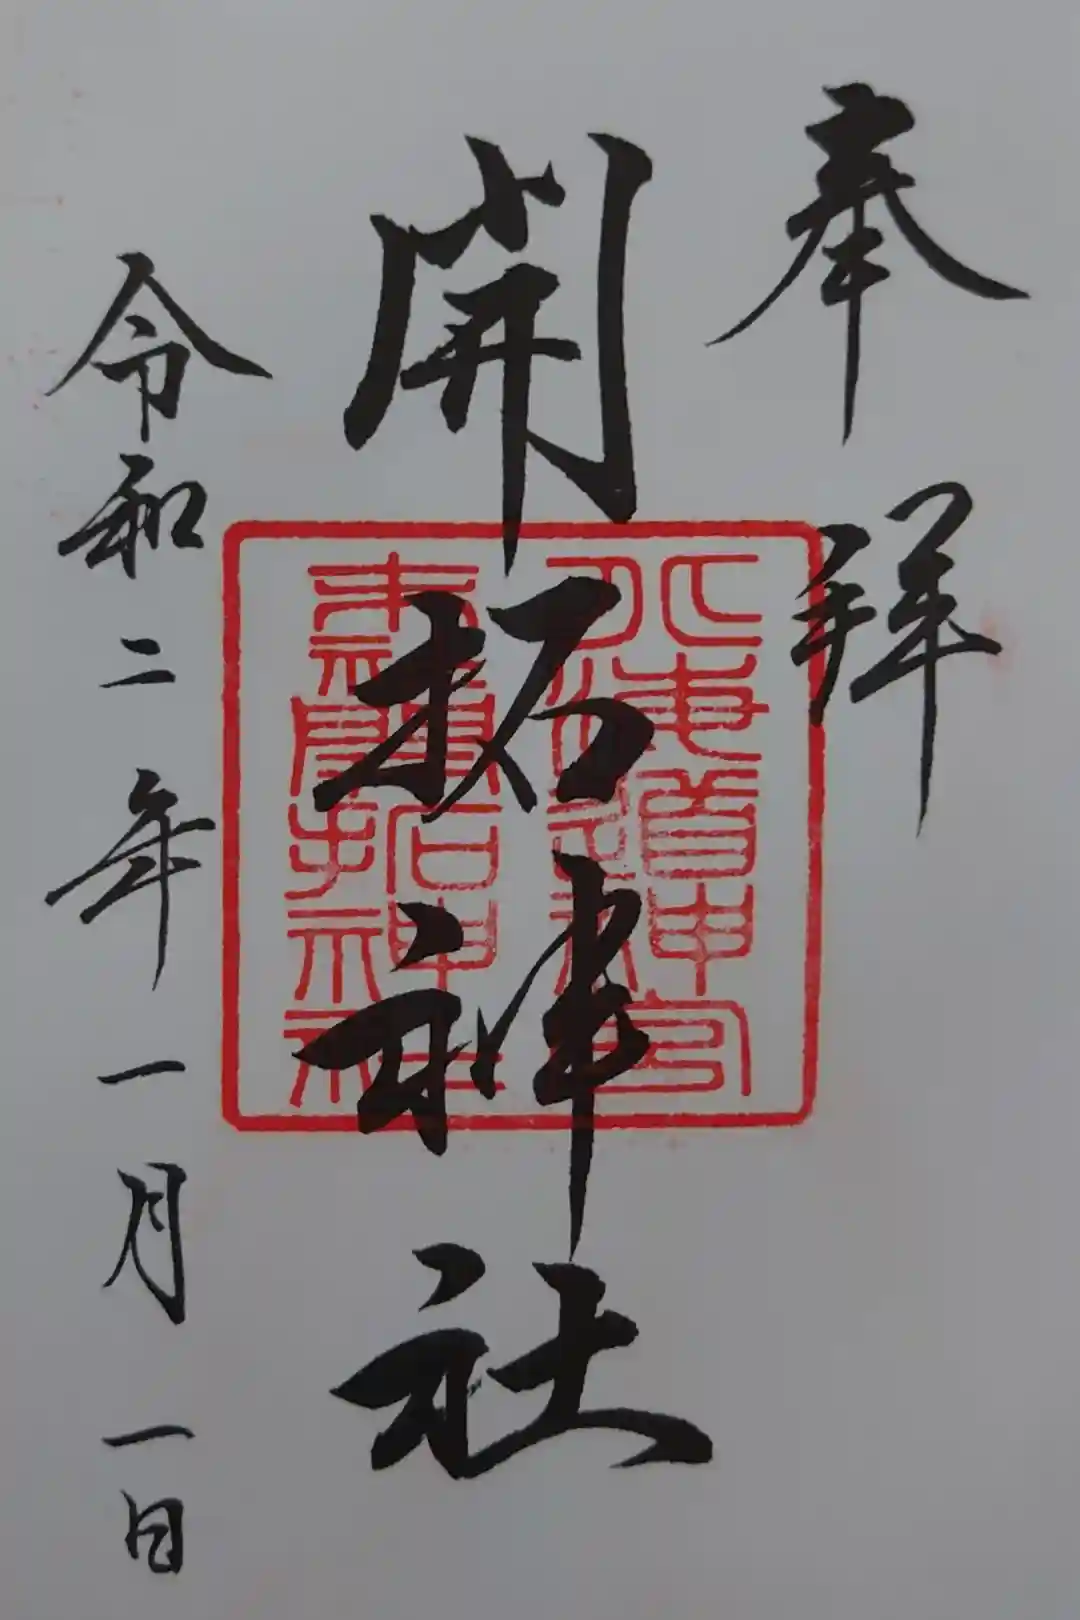 奉拝
開拓神社
北海道神宮
末社開拓神社
令和二年一月一日